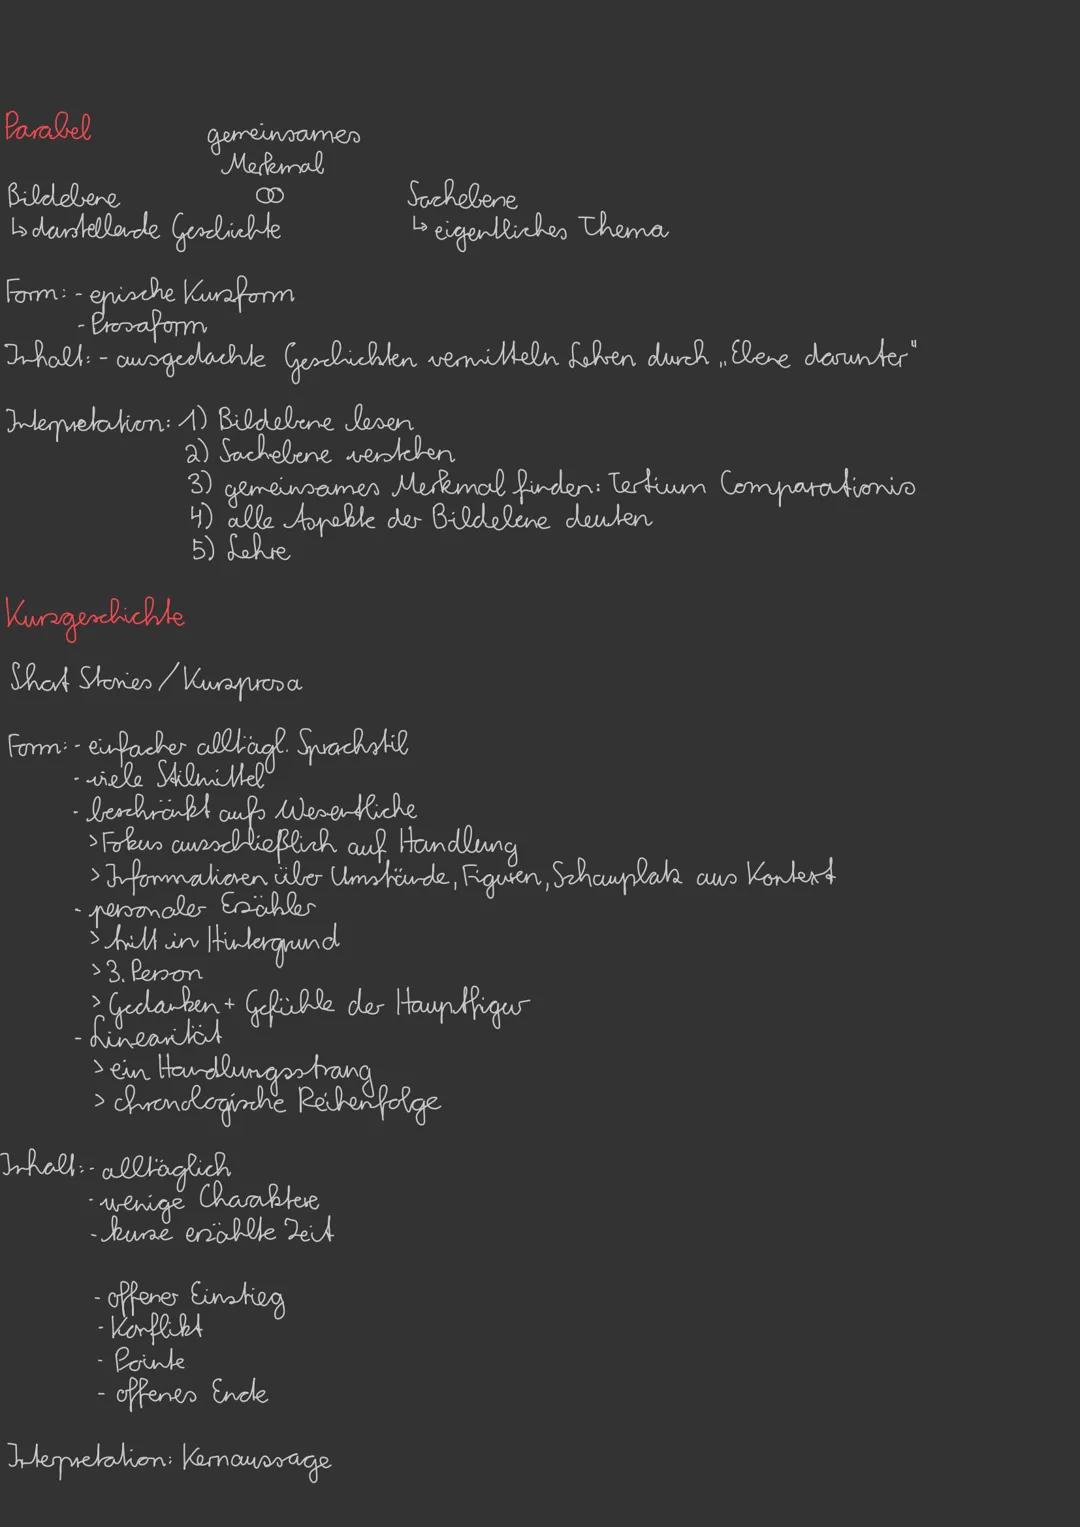 Parabel
gemeinsames
Merkmal
Bildebene
Sachebene
↳ darstellende Geschichte
↳ eigentliches Thema
Form: - epische Kurzform
- Prosaform
Inhalt: - ausgedachte Geschichten vermitteln Lehren durch „Ebene darunter"
Interpretation: 1) Bildebene lesen
2) Sachebene verstehen
3) gemeinsames Merkmal finden: Tertium Comparationis
4) alle Aspekte der Bildebene deuten
5) Lehre
Kurzgeschichte
Short Stories / Kurzprosa
Form: - einfacher alltägl. Sprachstil
- viele Stilmittel
- beschränkt aufs Wesentliche
> Fokus ausschließlich auf Handlung
> Informationen über Umstände, Figuren, Schauplatz aus Kontext
- personaler Erzähler
> tritt in Hintergrund
> 3. Person
> Gedanken + Gefühle der Hauptfigur
- Linearität
> ein Handlungsstrang
> chronologische Reihenfolge
Inhalt: - alltäglich
- wenige Charaktere
- kurze erzählte Zeit
- offener Einstieg
- Konflikt
- Pointe
- offenes Ende
Interpretation: Kernaussage